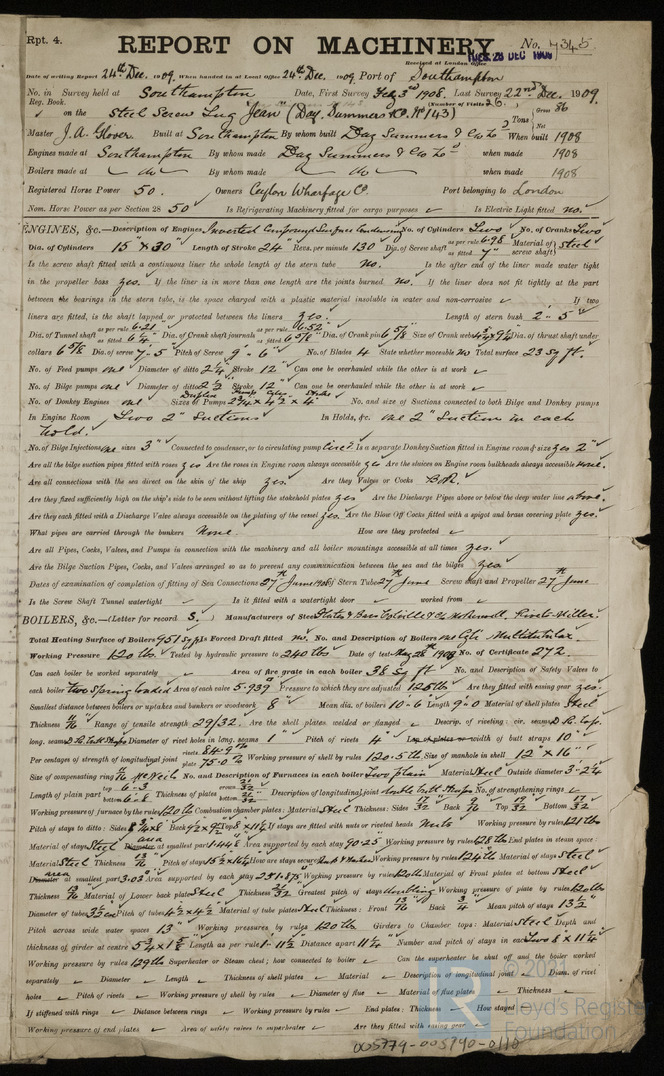 Rpt. 4.
REPORT ON MACHINERY.
No. 7345
Received at London Office TUES. 28 DEC 1909
Date of writing Report 24th Dec. 1909. When handed in at Local Office 24th Dec. 1909 Port of Southampton
No. in Survey held at Southampton Date, First Survey Feby 3rd 1908. Last Survey 22nd Dec. 1909.
Reg. Book. (Number of Visits 26.)
on the Steel Screw Tug "Jean" (Day, Summers & Co. No 143) Tons Gross 86 Net
Master J. A. Glover. Built at Southampton By whom built Day Summers & Co Ld When built 1908
Engines made at Southampton By whom made Day Summers & Co Ld when made 1908
Boilers made at do By whom made do when made 1908
Registered Horse Power 50. Owners Ceylon Wharfage Co. Port belonging to London
Nom. Horse Power as per Section 28 50 Is Refrigerating Machinery fitted for cargo purposes Is Electric Light fitted no.
ENGINES, &c.—Description of Engines Inverted Compound Surface Condensing No. of Cylinders Two No. of Cranks Two
Dia. of Cylinders 15" x 30" Length of Stroke 24" Revs. per minute 130 Dia. of Screw shaft as per rule 6.98 as fitted 7" Material of screw shaft steel
Is the screw shaft fitted with a continuous liner the whole length of the stern tube no. Is the after end of the liner made water tight
in the propeller boss yes. If the liner is in more than one length are the joints burned no. If the liner does not fit tightly at the part
between the bearings in the stern tube, is the space charged with a plastic material insoluble in water and non-corrosive If two
liners are fitted, is the shaft lapped or protected between the liners yes. Length of stern bush 2'-5"
Dia. of Tunnel shaft as per rule 6.21 as fitted 6 1/4" Dia. of Crank shaft journals as per rule 6.52" as fitted 6 5/8" Dia. of Crank pin 6 5/8" Size of Crank webs Dia. of thrust shaft under
collars 6 5/8 Dia. of screw 7'-5 Pitch of Screw 9'-6" No. of Blades 4 State whether moceable no Total surface 23 sq ft.
No. of Feed pumps one Diameter of ditto 2 1/4 Stroke 12" Can one be overhauled while the other is at work
No. of Bilge pumps one Diameter of ditto 2 1/2 Stroke 12" Can one be overhauled while the other is at work
No. of Donkey Engines one Sizes of Pumps Duplex No. and size of Suctions connected to both Bilge and Donkey pumps
In Engine Room Two 2" Suctions In Holds, &c. one 2" Suction in each
hold.
No. of Bilge Injections one sizes 3" Connected to condenser, or to circulating pump Is a separate Donkey Suction fitted in Engine room & size yes 2"
Are all the bilge suction pipes fitted with roses yes Are the roses in Engine room always accessible yes Are the sluices on Engine room bulkheads always accessible none.
Are all connections with the sea direct on the skin of the ship yes. Are they Valves or Cocks Both.
Are they fixed sufficiently high on the ship's side to be seen without lifting the stokehold plates yes Are the Discharge Pipes above or below the deep water line above.
Are they each fitted with a Discharge Valve always accessible on the plating of the vessel yes. Are the Blow Off Cocks fitted with a spigot and brass covering plate yes.
What pipes are carried through the bunkers None. How are they protected
Are all Pipes, Cocks, Valves, and Pumps in connection with the machinery and all boiler mountings accessible at all times yes.
Are the Bilge Suction Pipes, Cocks, and Valves arranged so as to prevent any communication between the sea and the bilges yes
Dates of examination of completion of fitting of Sea Connections 27th June 1908 of Stern Tube 27th June Screw shaft and Propeller 27th June
Is the Screw Shaft Tunnel watertight Is it fitted with a watertight door worked from
BOILERS, &c.—(Letter for record S.) Manufacturers of Steel
Total Heating Surface of Boilers 951 sq ft Is Forced Draft fitted no. No. and Description of Boilers one Cyl. Multitubular.
Working Pressure 120 lbs Tested by hydraulic pressure to 240 lbs Date of test May 28th 1908 No. of Certificate 272.
Can each boiler be worked separately Area of fire grate in each boiler 38 sq ft No. and Description of Safety Valves to
each boiler two Spring loaded Area of each valve 5.939" Pressure to which they are adjusted 125 lbs Are they fitted with easing gear yes.
Smallest distance between boilers or uptakes and bunkers or woodwork 8" Mean dia. of boilers 10-6 Length 9'-0 Material of shell plates Steel
Thickness Range of tensile strength 29/32. Are the shell plates welded or flanged Descrip. of riveting: cir. seams D.R. Lap.
long. seams Diameter of rivet holes in long. seams 1" Pitch of rivets 4" width of butt straps 10"
Per centages of strength of longitudinal joint rivets 84.9% plate 75.0% Working pressure of shell by rules 120.5 lbs Size of manhole in shell 12" x 16"
Size of compensating ring McNeil No. and Description of Furnaces in each boiler Two plain Material Steel Outside diameter 3'-2 1/4
Length of plain part top 6-3 bottom 6-8 Thickness of plates crown bottom Description of longitudinal joint No. of strengthening rings
Working pressure of furnace by the rules 120 lb Combustion chamber plates: Material Steel Thickness: Sides Back Top Bottom
Pitch of stays to ditto: Sides Back Top If stays are fitted with nuts or riveted heads Nuts Working pressure by rules 121 lbs
Material of stays Steel area at smallest part 1.44 Area supported by each stay 90.25" Working pressure by rules 128 lb End plates in steam space:
Material Steel Thickness Pitch of stays How are stays secured Nuts & Washers Working pressure by rules 124 lb Material of stays Steel
area at smallest part 3.03 Area supported by each stay 231.875 Working pressure by rules 120 lb Material of Front plates at bottom Steel
Thickness Material of Lower back plate Steel Thickness Greatest pitch of stays Working pressure of plate by rules 120 lbs
Diameter of tubes Pitch of tubes 4 1/2 x 4 1/2 Material of tube plates Steel Thickness: Front Back 3/4 Mean pitch of stays 13 1/2
Pitch across wide water spaces 13" Working pressures by rules 120 lb Girders to Chamber tops: Material Steel Depth and
thickness of girder at centre Length as per rule 1'-11 1/2 Distance apart 11 1/4 Number and pitch of stays in each Two
Working pressure by rules 129 lb Superheater or Steam chest; how connected to boiler Can the superheater be shut off and the boiler worked
separately Diameter Length Thickness of shell plates Material Description of longitudinal joint Diam. of rivet
holes Pitch of rivets Working pressure of shell by rules Diameter of flue Material of flue plates Thickness
If stiffened with rings Distance between rings Working pressure by rules End plates: Thickness How stayed
Working pressure of end plates Area of safety valves to superheater Are they fitted with easing gear
© 2021
Lloyd's Register
Foundation
005779-005790-0110